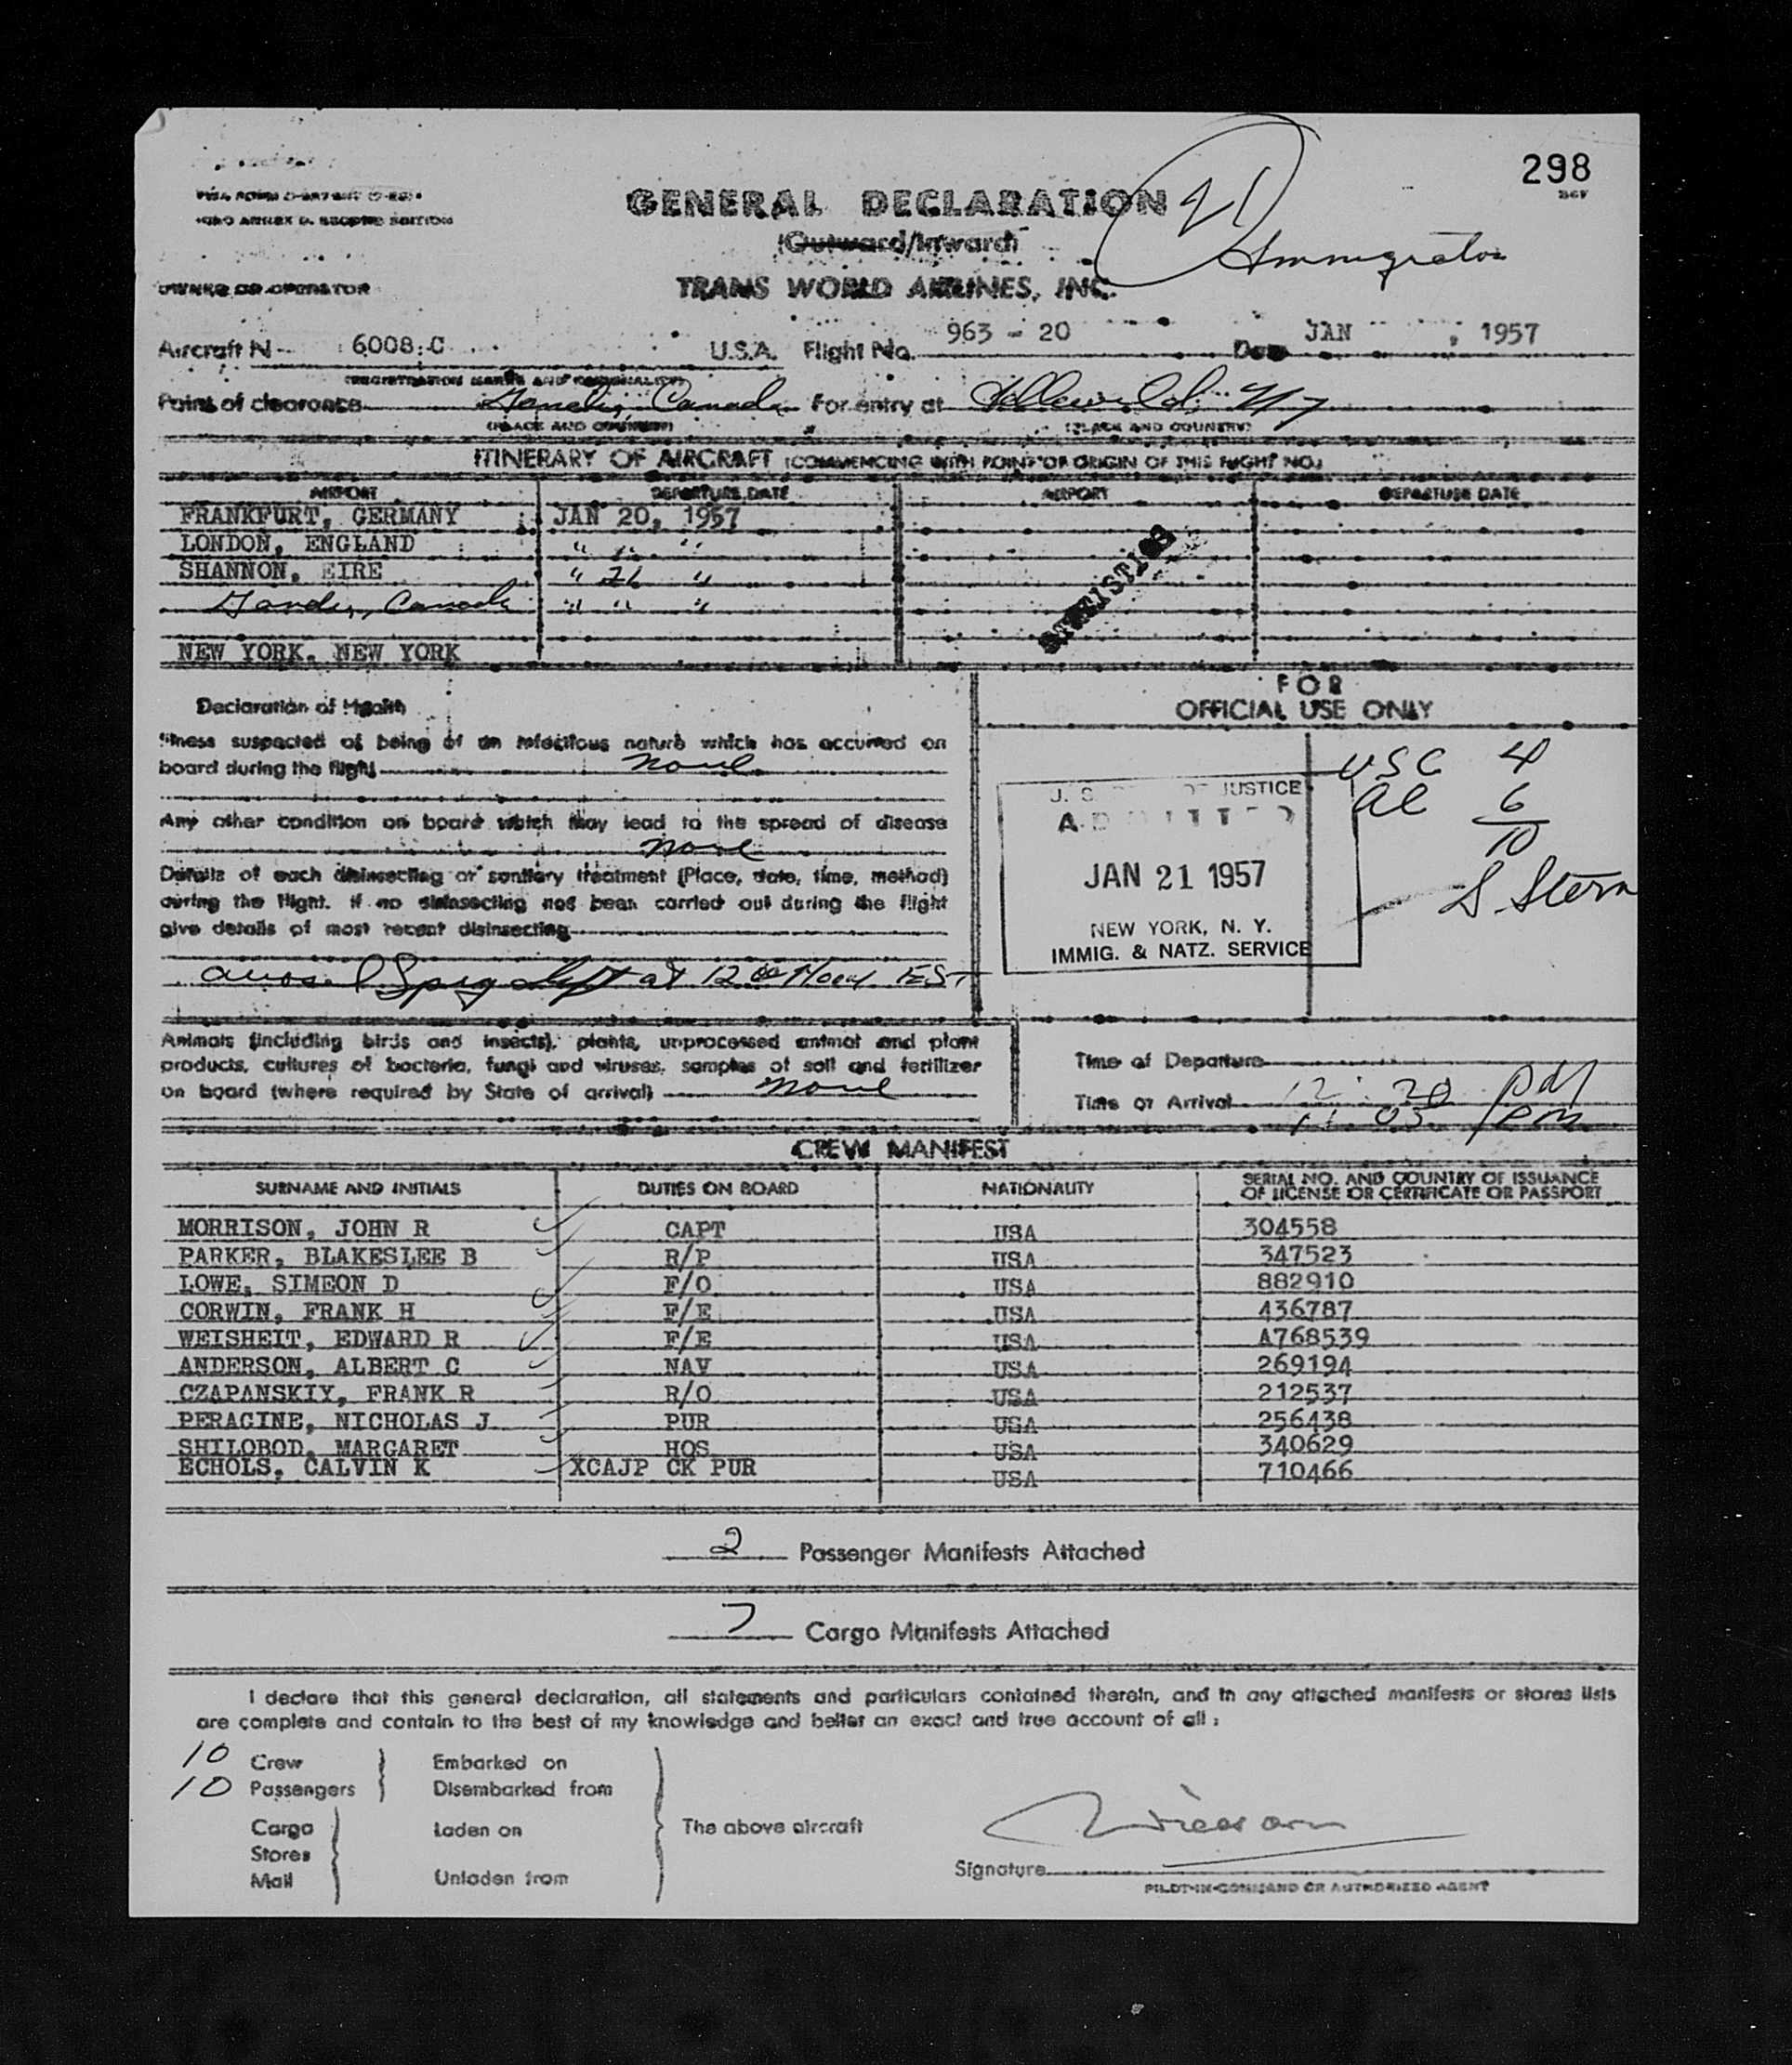 298
GENERAL DECLARATION
(Outward/Inward)
21
Immigration
OWNER OR OPERATOR
TRANS WORLD AIRLINES, INC.
Aircraft N 6008 C U.S.A. Flight No. 963 - 20 Date JAN , 1957
(REGISTRATION MARKS AND NATIONALITY)
Point of clearance Gander, Canada For entry at Idlewild, NY
(PLACE AND COUNTRY) (PLACE AND COUNTRY)
ITINERARY OF AIRCRAFT (COMMENCING WITH POINT OF ORIGIN OF THIS FLIGHT NO.)
AIRPORT DEPARTURE DATE AIRPORT DEPARTURE DATE
FRANKFURT, GERMANY JAN 20, 1957
LONDON, ENGLAND " " "
SHANNON, EIRE " 21 "
Gander, Canada " " "
NEW YORK, NEW YORK
STATISTICS
Declaration of Health
Illness suspected of being of an infectious nature which has occurred on
board during the flight none
Any other condition on board which may lead to the spread of disease
none
Details of each disinsecting or sanitary treatment (Place, date, time, method)
during the flight. If no disinsecting has been carried out during the flight
give details of most recent disinsecting
at 12 00 Noon EST
FOR
OFFICIAL USE ONLY
USC 4
al 6
10
S. Stern
U. S. JUSTICE
ADMITTED
JAN 21 1957
NEW YORK, N. Y.
IMMIG. & NATZ. SERVICE
Animals (including birds and insects), plants, unprocessed animal and plant
products, cultures of bacteria, fungi and viruses, samples of soil and fertilizer
on board (where required by State of arrival) none
Time of Departure
Time of Arrival 12:20 PM
CREW MANIFEST
SURNAME AND INITIALS DUTIES ON BOARD NATIONALITY SERIAL NO. AND COUNTRY OF ISSUANCE
OF LICENSE OR CERTIFICATE OR PASSPORT
MORRISON, JOHN R CAPT USA 304558
PARKER, BLAKESLEE B R/P USA 347523
LOWE, SIMEON D F/O USA 882910
CORWIN, FRANK H F/E USA 436787
WEISHEIT, EDWARD R F/E USA A768539
ANDERSON, ALBERT C NAV USA 269194
CZAPANSKIY, FRANK R R/O USA 212537
PERACINE, NICHOLAS J PUR USA 256438
SHILOBOD, MARGARET HOS USA 340629
ECHOLS, CALVIN K XCAJP CK PUR USA 710466
2 Passenger Manifests Attached
7 Cargo Manifests Attached
I declare that this general declaration, all statements and particulars contained therein, and in any attached manifests or stores lists
are complete and contain to the best of my knowledge and belief an exact and true account of all:
10 Crew Embarked on
10 Passengers Disembarked from
Cargo Laden on The above aircraft
Stores
Mail Unladen from
Signature
PILOT-IN-COMMAND OR AUTHORIZED AGENT